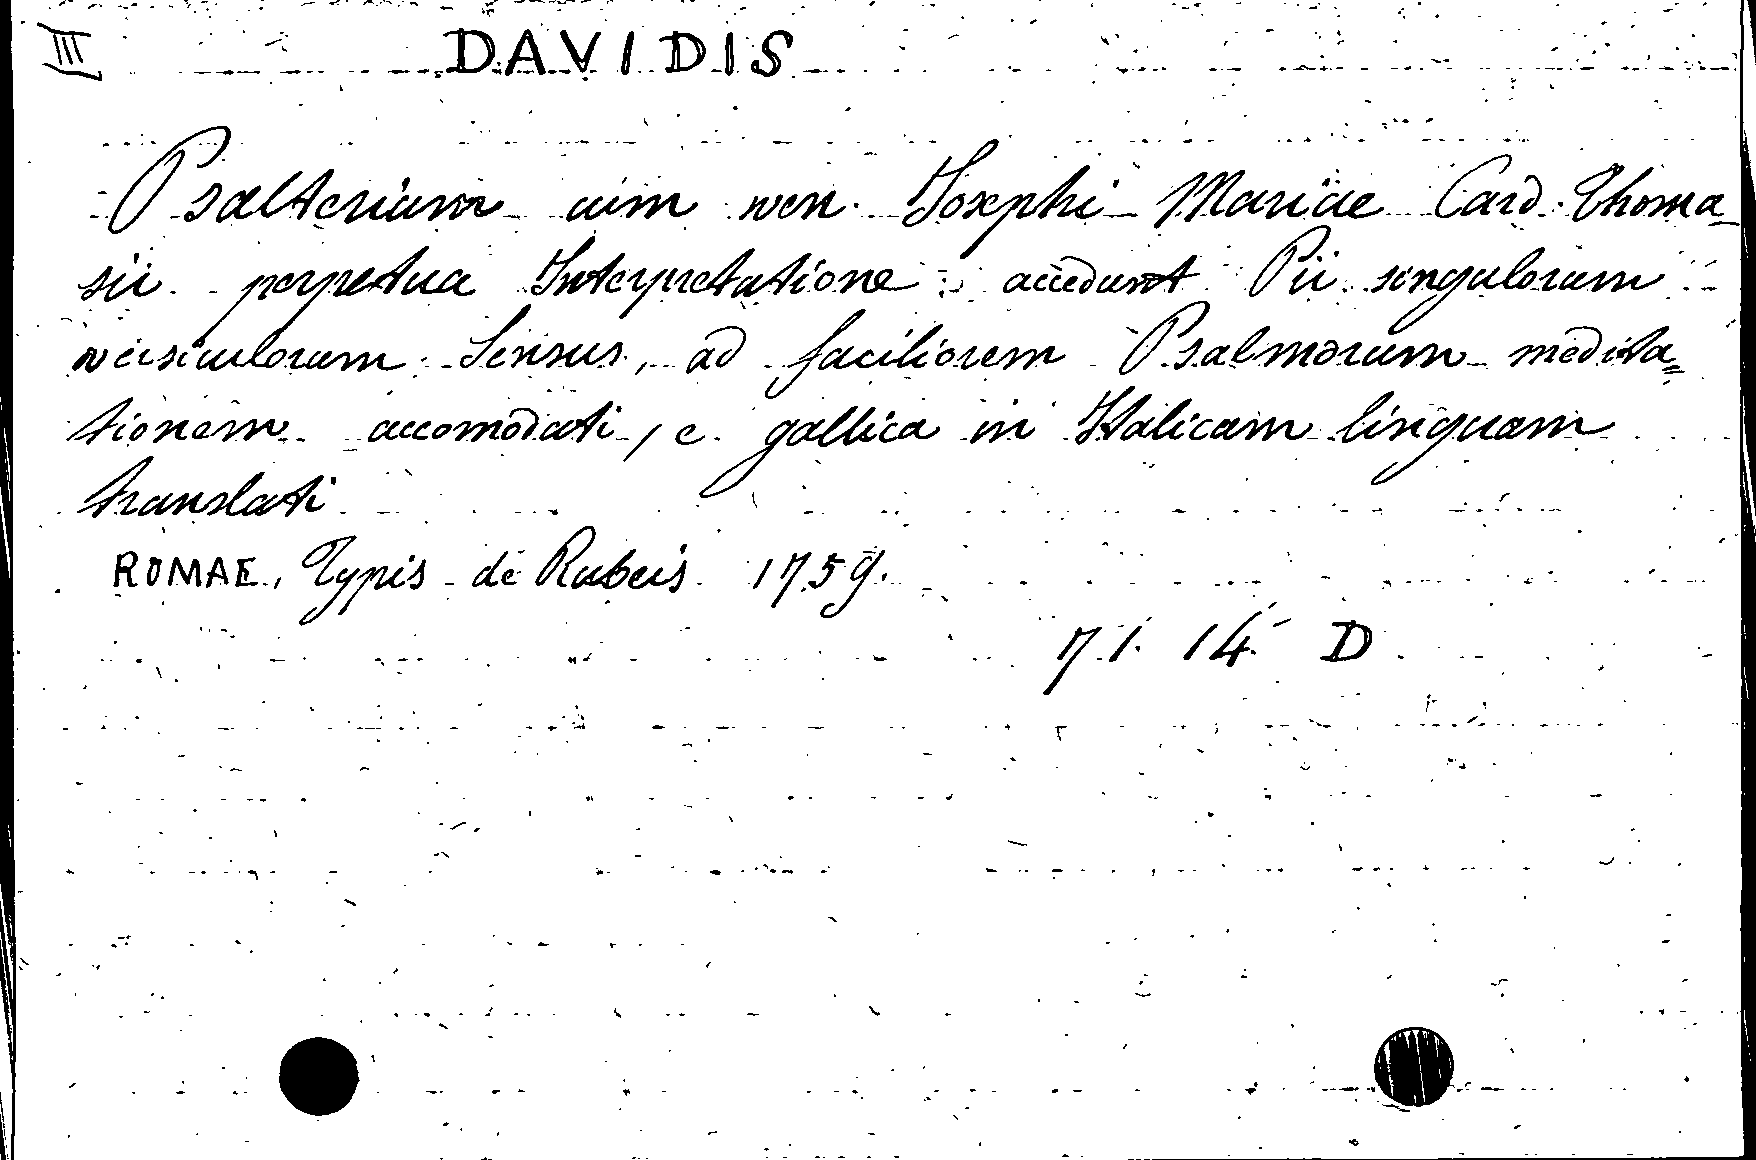 III DAVIDIS
Psalterium cum ven. Josephi Mariae Card. Thoma-
sii perpetua Interpretatione: accedunt Pii singulorum
versiculorum Sensus, ad faciliorem Psalmorum medita=
tionem accomodati, e gallica in Italicam linguam
translati
ROMAE, Typis de Rubeis 1759.
71. 14 D